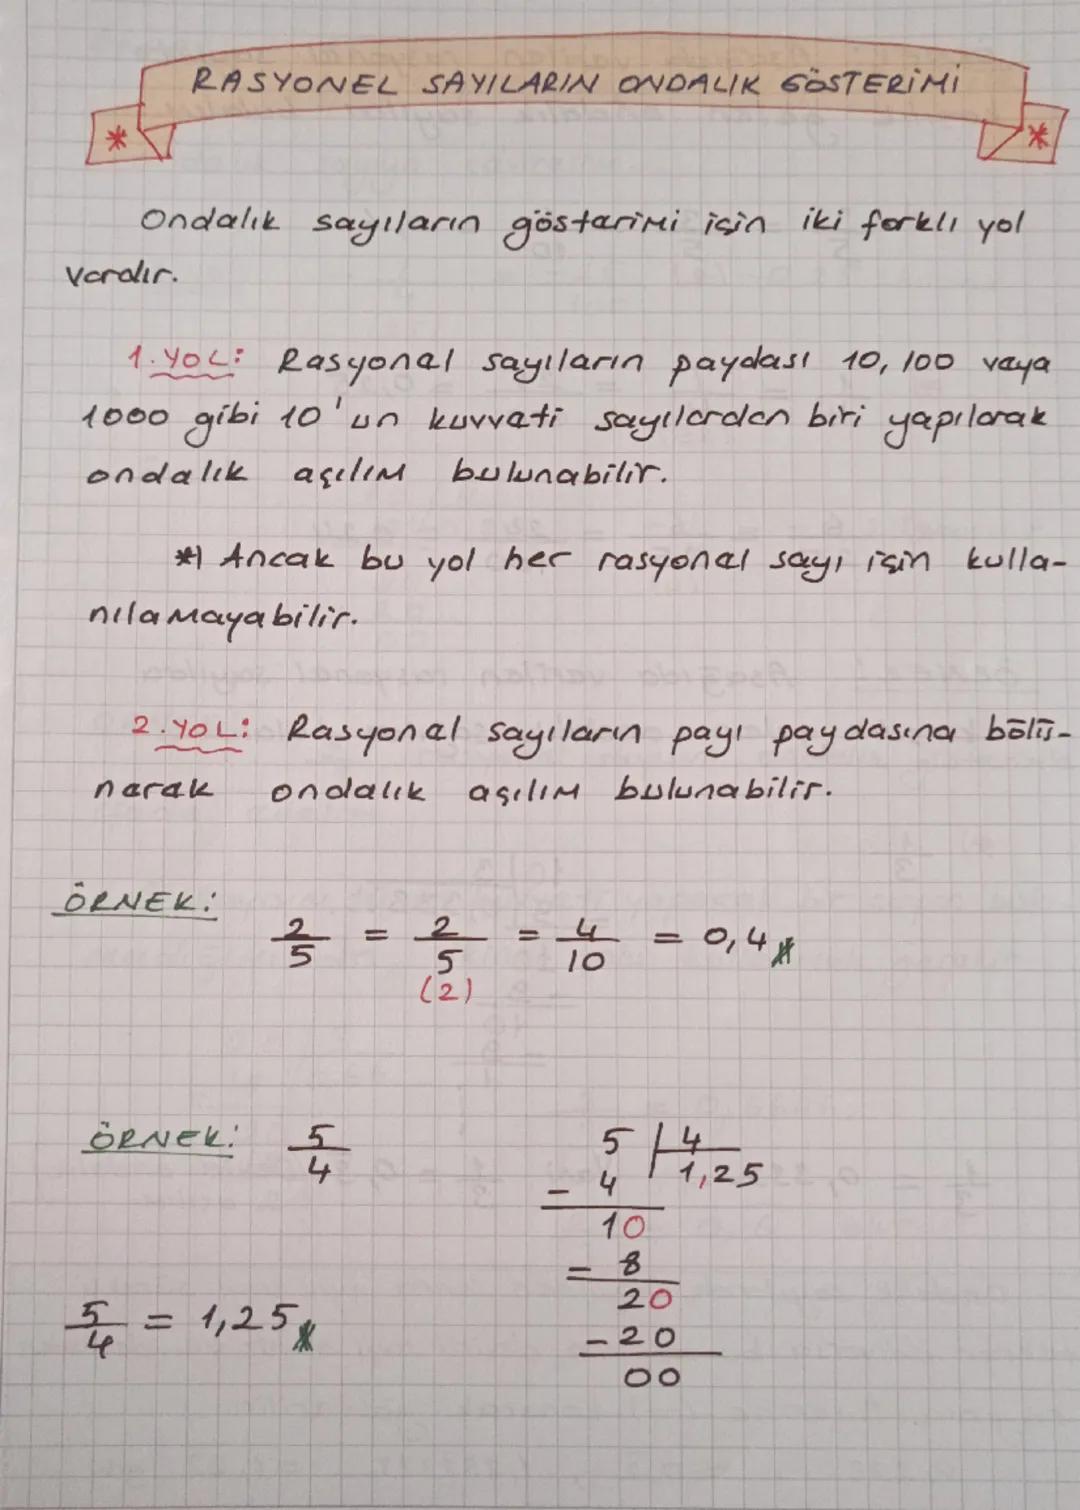 RASYONEL SAYILARIN ONDALIK GÖSTERİMİ
*
*
Ondalık sayıların gösterimi için iki farklı yol
vardır.
1. YOL: Rasyonel sayıların paydası 10, 100 veya
1000 gibi 10'un kuvveti sayılardan biri yapılarak
ondalık açılım bulunabilir.
*) Ancak bu yol her rasyonel sayı için kulla-
nılamayabilir.
2. YOL: Rasyonel sayıların payı paydasına bölü-
nerek ondalık açılım bulunabilir.
ÖRNEK:
2/5 = 2/5 = 4/10 = 0,4
(2)
ÖRNEK: 5/4
5 | 4
- 4 1,25
10
- 8
20
- 20
00
5/4 = 1,25